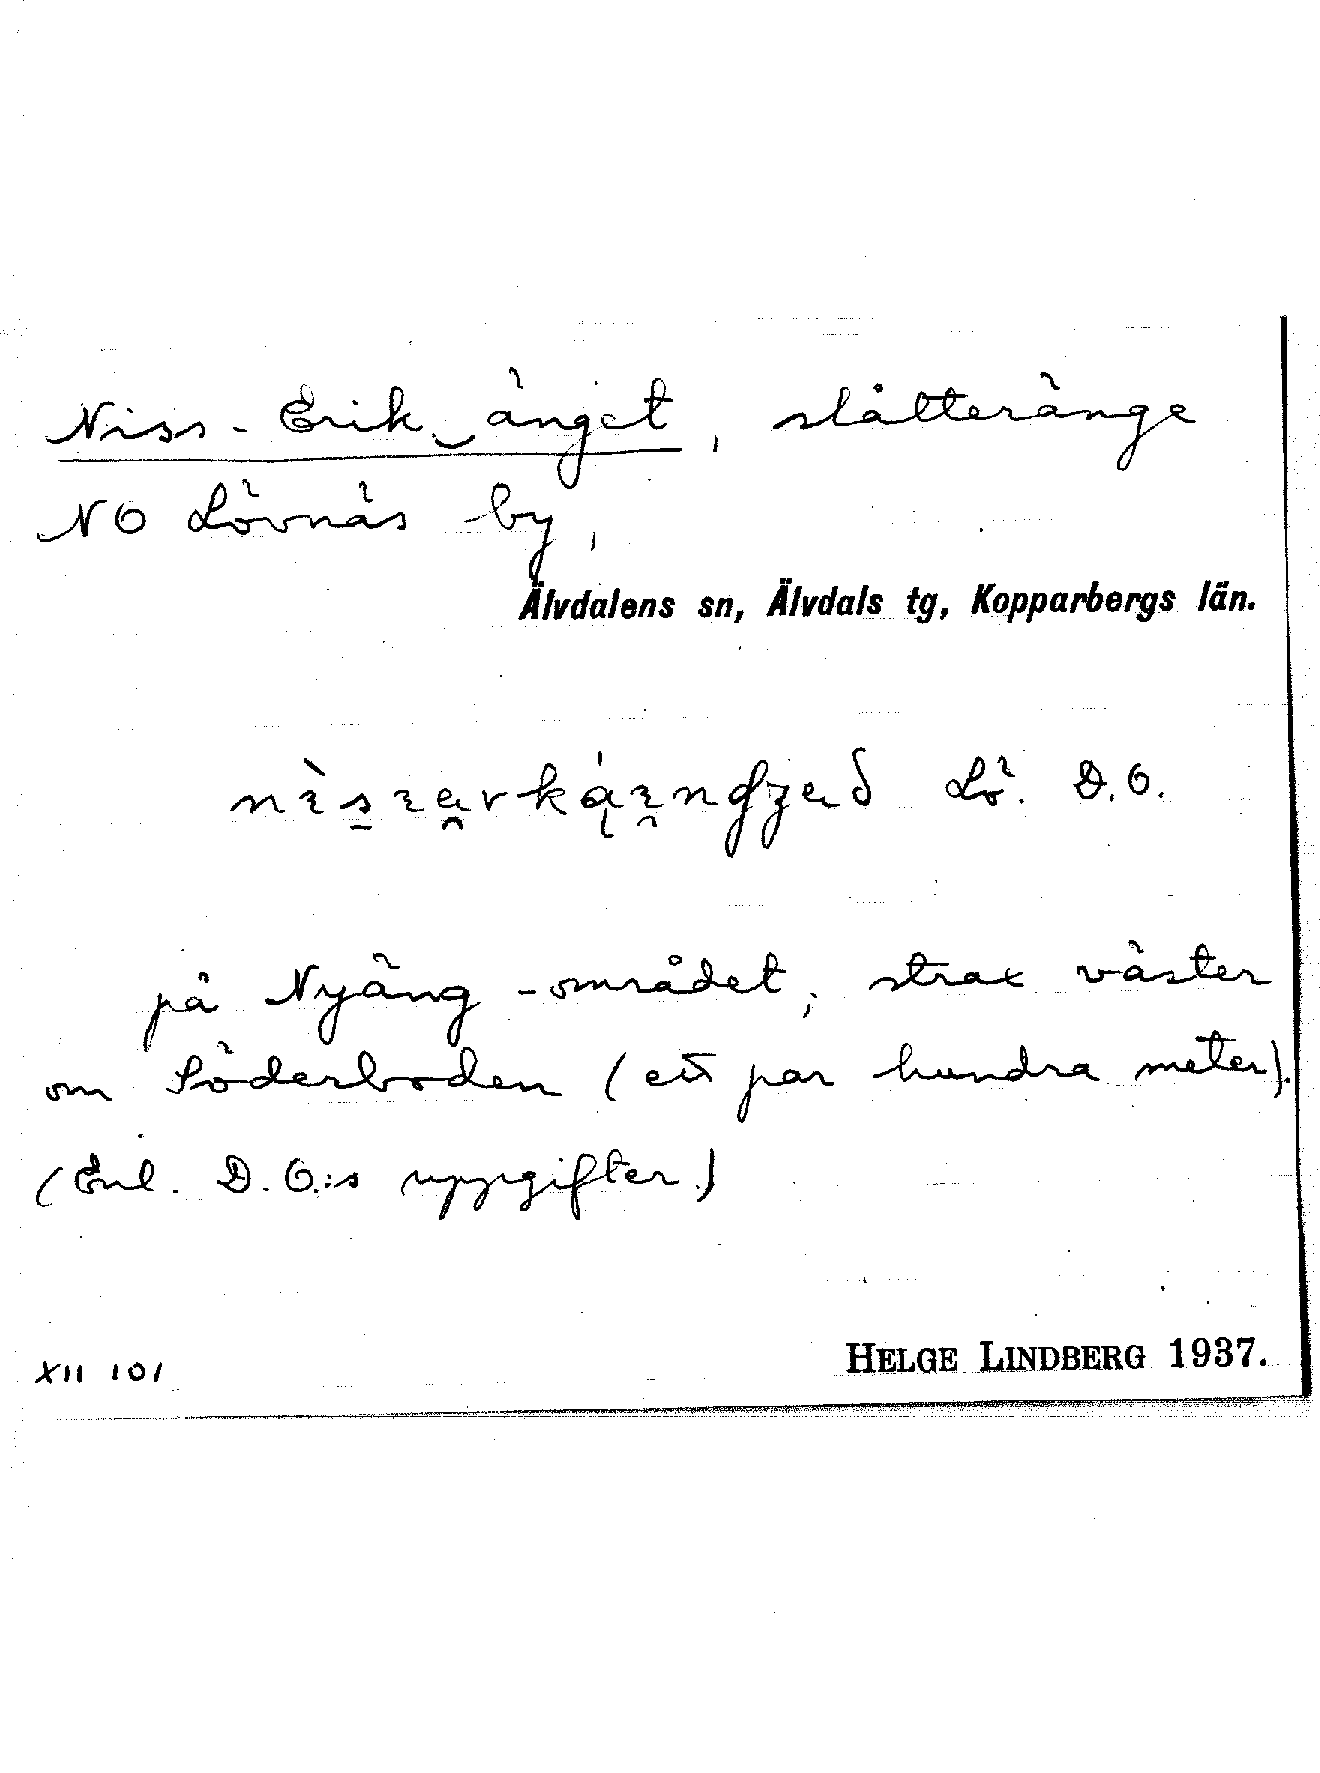 Niss-Erik‿änget, slåtteränge
NO Lövnäs by,
Älvdalens sn, Älvdals tg, Kopparbergs län.
Lö. D.O.
på Nyäng-området, strax väster
om Söderboden (ett par hundra meter).
(Enl. D.O.:s uppgifter.)
XII 101
HELGE LINDBERG 1937.